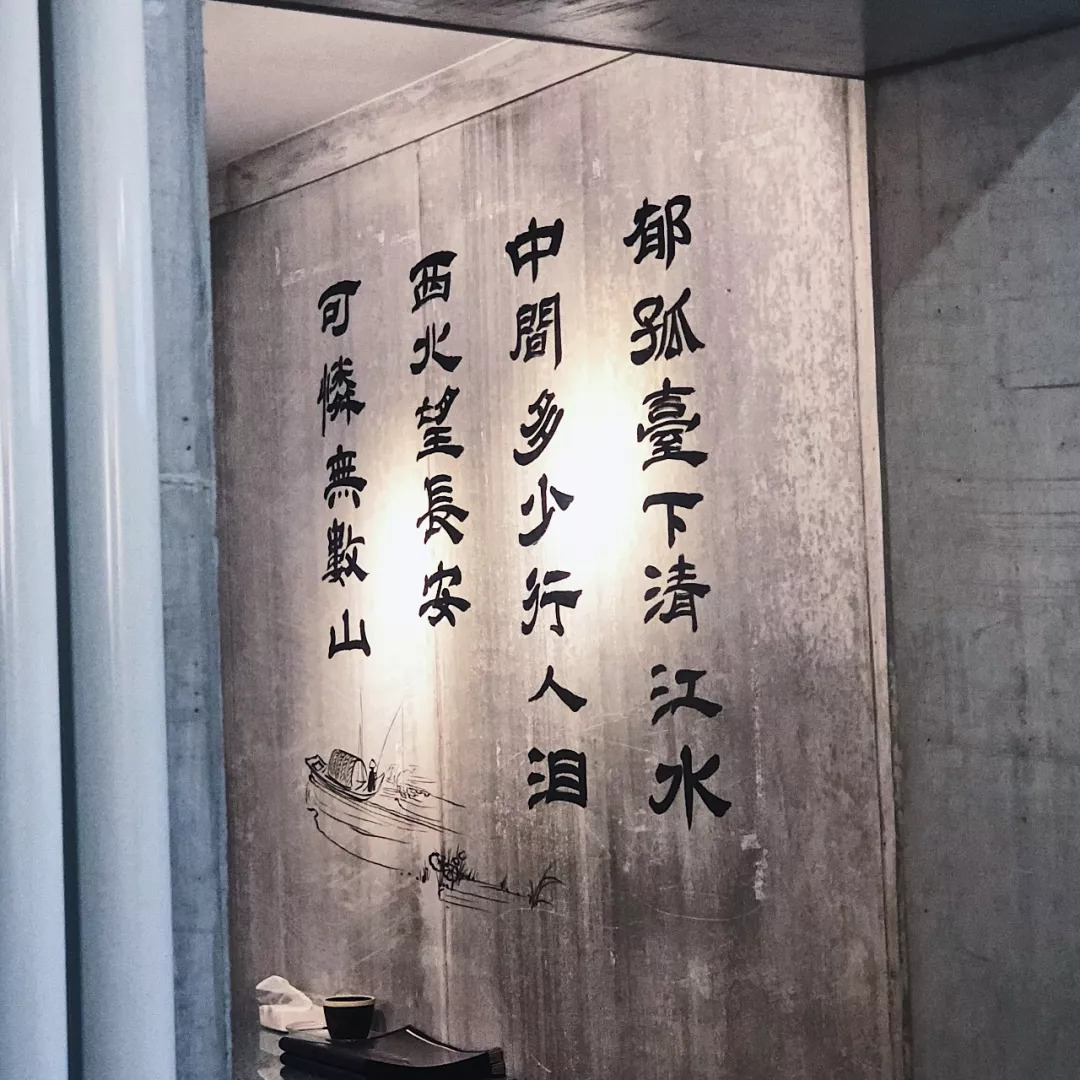 郁孤臺下清江水
中間多少行人泪
西北望長安
可憐無數山